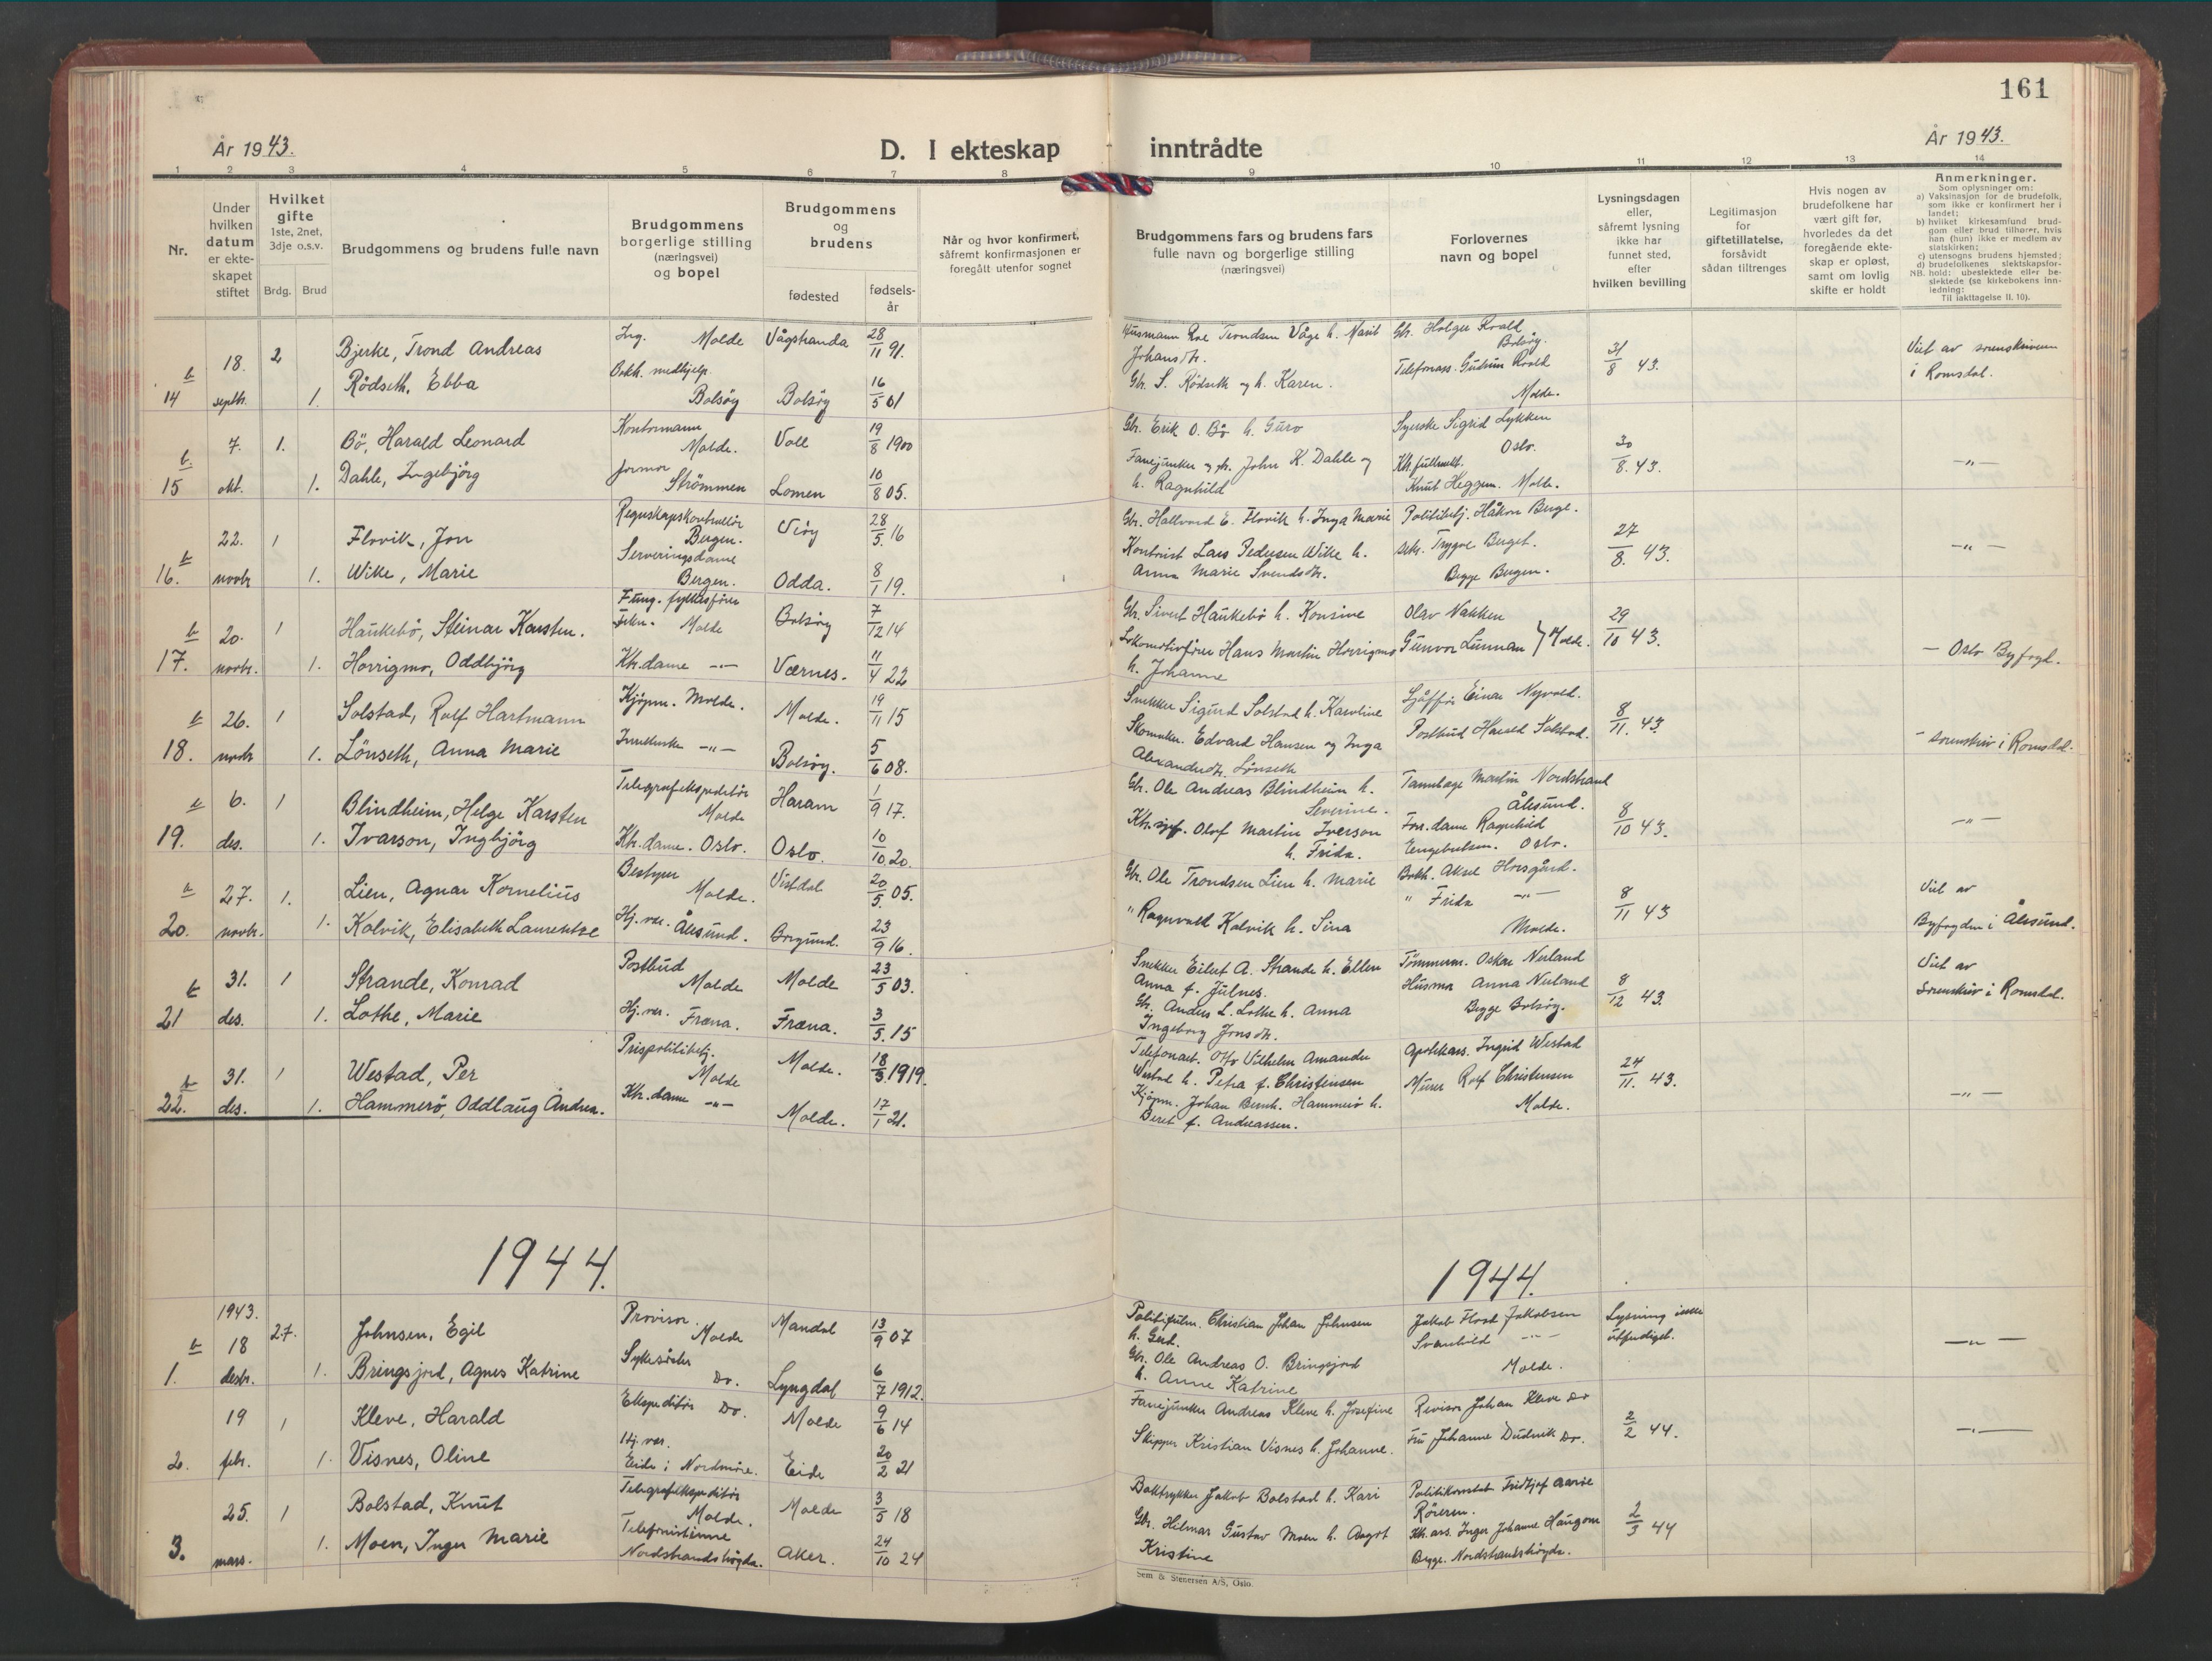 161
År 1943.
D. I ekteskap inntrådte
År 1943.
1 2 3 4 5 6 7 8 9 10 11 12 13 14
Nr.
Under hvilken datum er ekteskapet stiftet
Hvilket gifte 1ste, 2net, 3dje o.s.v.
Brdg. Brud
Brudgommens og brudens fulle navn
Brudgommens borgerlige stilling (næringsvei) og bopel
Brudgommens og brudens
fødested
fødselsår
Når og hvor konfirmert, såfremt konfirmasjonen er foregått utenfor sognet
Brudgommens fars og brudens fars fulle navn og borgerlige stilling (næringsvei)
Forlovernes navn og bopel
Lysningsdagen eller, såfremt lysning ikke har funnet sted, efter hvilken bevilling
Legitimasjon for giftetillatelse, forsåvidt sådan tiltrenges
Hvis nogen av brudefolkene har vært gift før, hvorledes da det foregående ekteskap er opløst, samt om lovlig skifte er holdt
Anmerkninger.
Som oplysninger om:
a) Vaksinasjon for de brudefolk, som ikke er konfirmert her i landet;
b) hvilket kirkesamfund brudgom eller brud tilhører, hvis han (hun) ikke er medlem av statskirken;
c) utensogns brudens hjemsted;
d) brudefolkenes slektskapsforhold: ubeslektede eller beslektede (se kirkebokens innledning:
NB.
Til iakttagelse II. 10).
b 14 18. septbr. 2 Bjerke, Trond Andreas Ing. Molde Vågstranda 28/11 91.
1. Rödseth, Ebba Bokh. medhjelp. Bolsöy Bolsöy 16/5 01
Husmann Roe Trondsen Våge h. Marit Johansdtr.
Gbr. S. Rödseth og h. Karen.
Gbr. Holger Roald Bolsöy.
Telefonass. Gudrun Roald Molde.
31/8 43.
Viet av sorenskriveren i Romsdal.
b 15 7. okt. 1. Bö, Harald Leonard Kontormann Molde. Voll 19/8 1900
1. Dahle, Ingebjörg Strömmen Lomen 10/8 05.
Gbr. Erik O. Bö h. Guro
Fanejunker og John K. Dahle og h. Ragnhild
Syerske Sigrid Lykken Oslo.
Knut Heggem. Molde.
30/8. 43.
-"-
b 16. 22. novbr 1 Flovik, Jon Regnskapskontrollör Bergen. Veöy 28/5. 16
1. Wike, Marie Serveringsdame Bergen. Odda. 8/1 19.
Gbr. Hallvard E. Flovik h. Inga Marie
Kontorist Lars Pedersen Wike h. Anna Marie Svendsdtr.
Politibetj. Håkon Berge.
sekr. Trygve Berget.
Begge Bergen.
27/8. 43.
-"-
b 17. 20. novbr. 1 Haukebö, Steinar Karsten. Fung. fylkesförer Molde Bolsöy 7/12 14
1. Horrigmo, Oddbjörg Ktr.dame -"- Værnes. 11/4 22
Gbr. Sivert Haukebö h. Konsine
Lokomotivförer Hans Martin Horrigmo h. Johanne
Olav Nakken
Gunvor Lunnan } Molde.
29/10 43.
- Oslo Byfogd.
b 18. 26. novbr 1 Solstad, Rolf Hartmann Kjöpm. Molde. Molde. 19/11 15
1. Lönseth, Anna Marie -"- Bolsöy. 5/6 08.
Snekker Sigurd Solstad h. Karoline
Skomaker. Edvard Hansen og Inga Alexandersdtr. Lönseth
Sjåffør Einar Nyvold.
Postbud Harald Solstad.
8/11. 43.
- sorenskriv i Romsdal.
b 19. 6. des. 1 Blindheim, Helge Karsten Telegrafekspeditör Molde Haram 1/9 17.
1. Ivarson, Ingbjörg Ktr.dame. Oslo. Oslo. 10/10. 20.
Gbr. Ole Andreas Blindheim h. Severine.
Ktr.sjef. Olof Martin Iverson h. Frida.
Tannlege Martin Nordstrand Ålesund.
Forr.dame Ragnhild Engebretsen. Oslo.
8/10 43.
-"-
b 20. 27. novbr. 1. Lien, Agnar Kornelius Bestyrer Molde. Vistdal 20/5. 05.
1. Kalvik, Elisabeth Laurentze Hj.vær. Ålesund. Borgund. 23/9 16.
Gbr. Ole Trondsen Lien h. Marie
" Ragnvald Kalvik h. Sina
Bokh. Aksel Horsgård.
" Frida -"-
Molde.
8/11 43
Viet av Byfogden i Ålesund.
b 21 31. des. 1 Strande, Konrad Postbud Molde Molde 23/5 03.
1. Lothe, Marie Hj.vær. Fræna. Fræna. 3/5. 15
Snekker Eilert A. Strande h. Ellen Anna f. Julnes.
Gbr. Anders L. Lothe h. Anna Ingeborg Jonsdtr.
Tömmerm. Oskar Nerland
Husmor Anna Nerland
Begge Bolsöy.
8/12 43.
Viet av Sorenskriv i Romsdal.
b 22. 31. des. 1 Westad, Per Prispolitibetj. Molde Molde. 18/3 1919.
1. Hammerö, Oddlaug Andrea. Ktr.dame -"- Molde. 17/1 21.
Telefonarb. Otto Vilhelm Amandu Westad h. Petra f. Christensen
Kjöpm. Johan Bernh. Hammerö h. Beret f. Andreassen.
Apotekass. Ingrid Westad
Murer Rolf Christensen
Molde.
24/11. 43.
-"-
1944. 1944.
b 1. 1943. 18 desbr. 27. Johnsen, Egil Provisor. Molde Mandal 13/9 07
1. Bringsjord, Agnes Katrine Sykesöster Do. Lyngdal 6/7 1912.
Politifulm. Christian Johan Johnsen h. Gerd.
Gbr. Ole Andreas O. Bringsjord h. Anne Katrine
Jakob Flood Jakobsen
Svanhild -"-
Molde.
Lysning
-"-
2. 19 febr. 1 Kleve, Harald Ekspeditör Do. Molde 9/6 14
1. Visnes, Oline Hj.vær. Eide i Nordmöre. Eide 20/2 21
Fanejunker Andreas Kleve h. Josefine
Skipper Kristian Visnes h. Johanne.
Revisor Johan Kleve Do
Fru Johanne Dudvik Do.
2/2 44.
-"-
3. 25. mars. 1 Bolstad, Knut Telegrafekspeditör Molde. Molde 3/5 18
1. Moen, Inger Marie Telefonistinne Nordstrandshögda. Aker. 24/10 24
Boktrykker Jakob Bolstad h. Kari
Gbr. Hilmar Gustav Moen h. Aagot Kristine
Politikonstab Fridtjof Aarie Röeren.
Ktr.ass. Inger Johanne Haugom
Begge. Nordstrandshögda.
2/3 44
Sem & Stenersen A/S, Oslo.